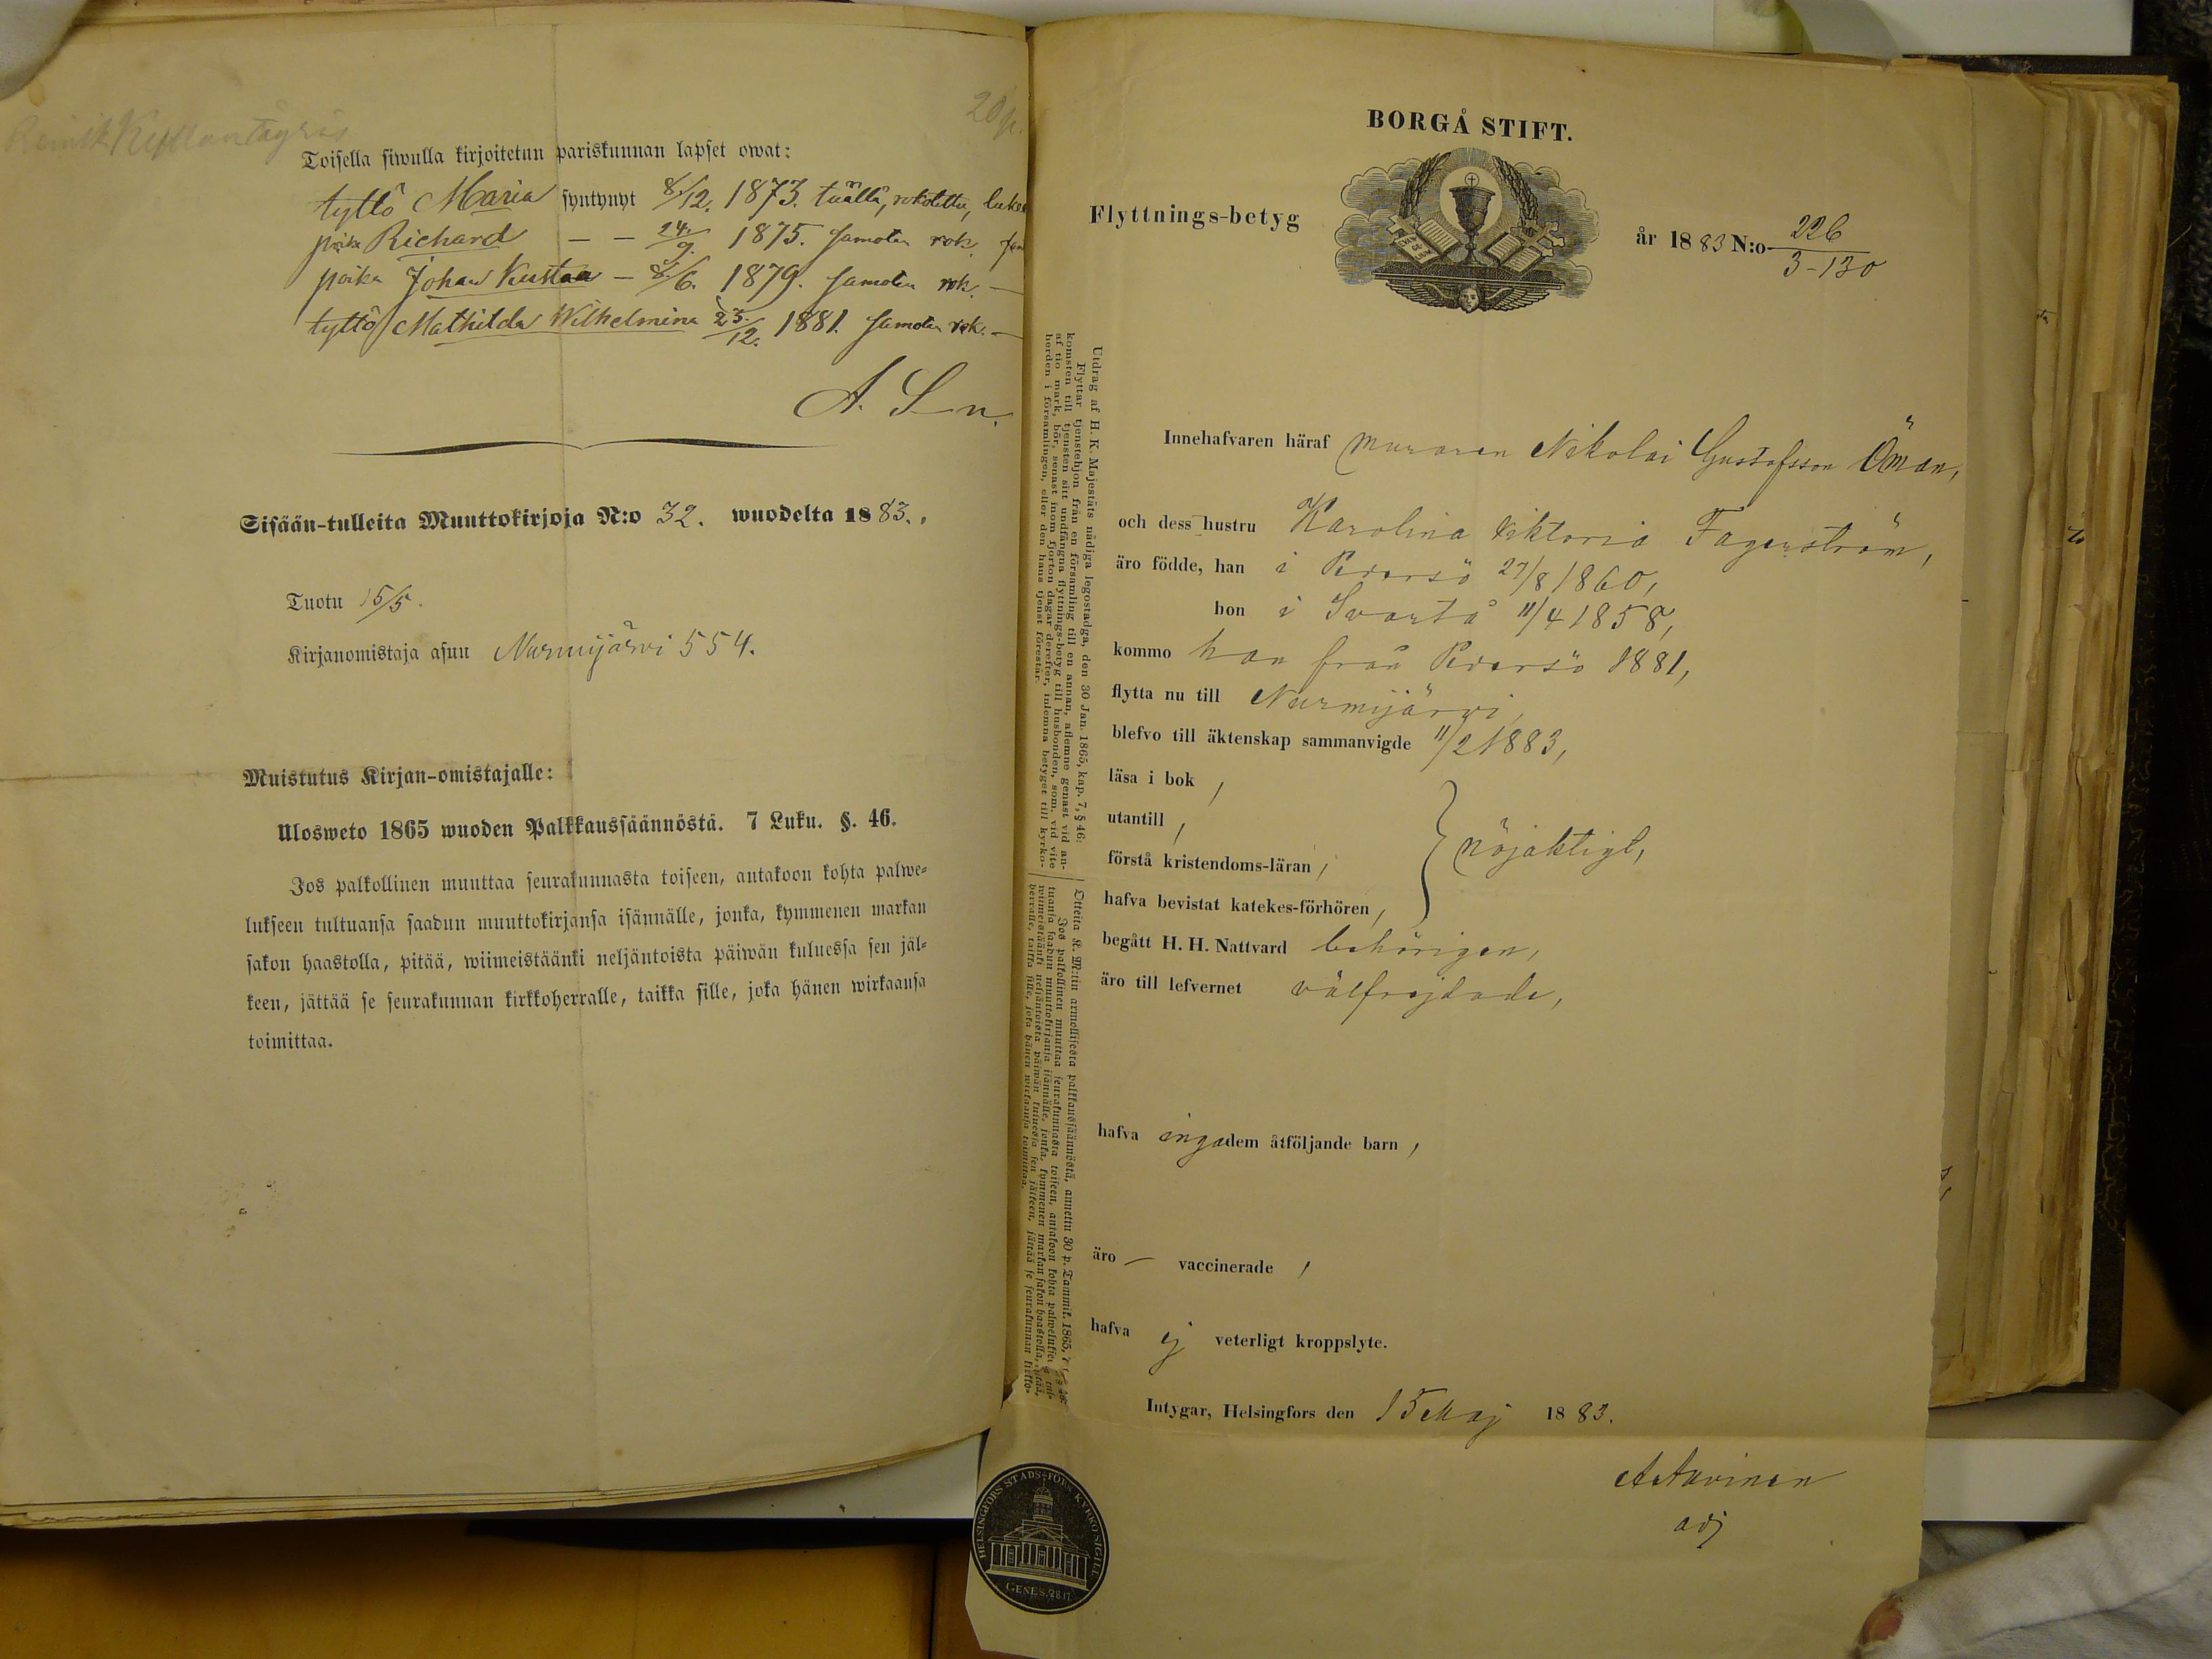 20 p.
Toisella siwulla kirjoitetun pariskunnan lapset owat:
tyttö Maria syntynyt 8/12. 1873. täällä, rokotettu,
poika Richard — — 24/9. 1875. samoten rok.
poika Johan Kustaa — 8/6. 1879. samoten rok. —
tyttö Mathilda Wilhelmina 23./12. 1881. samoten rok. —
A. S—n.
Sisään-tulleita Muuttokirjoja N:o 32. wuodelta 1883.
Tuotu 15/5.
Kirjanomistaja asuu Nurmijärwi 554.
Muistutus Kirjan-omistajalle:
Ulosweto 1865 wuoden Palkkaussäännöstä. 7 Luku. §. 46.
Jos palkollinen muuttaa seurakunnasta toiseen, antakoon kohta palwe-
lukseen tultuansa saadun muuttokirjansa isännälle, jonka, kymmenen markan
sakon haastolla, pitää, wiimeistäänki neljäntoista päiwän kuluessa sen jäl-
keen, jättää se seurakunnan kirkkoherralle, taikka sille, joka hänen wirkaansa
toimittaa.
BORGÅ STIFT.
Flyttnings-betyg
år 1883 N:o 226
3-130
Innehafvaren häraf muraren Nikolai Gustafsson Öman,
och dess hustru Karolina Viktoria Fagerström,
äro födde, han i Pedersö 27/8 1860,
hon i Svartå 11/4 1858,
kommo han från Pedersö 1881,
flytta nu till Nurmijärvi,
blefvo till äktenskap sammanvigde 11/2 1883,
läsa i bok,
utantill,
förstå kristendoms-läran,
nöjaktigt,
hafva bevistat katekes-förhören,
begått H. H. Nattvard behörigen,
äro till lefvernet välfrejdade,
hafva inga dem åtföljande barn,
äro — vaccinerade,
hafva ej veterligt kroppslyte.
Intygar, Helsingfors den 15 Maj 1883.
A Auvinen
adj
Utdrag af H. K. Majestäts nådiga legostadga, den 30 Jan. 1865, kap. 7, § 46:
Flyttar tjenstehjon från en församling till en annan, aflemne genast vid an-
komsten till tjensten sitt undfångna flyttnings-betyg till husbonden, som, vid vite
af tio mark, bör, senast inom fjorton dagar derefter, inlemna betyget till kyrko-
herden i församlingen, eller den hans tjenst förestår.
Otteita K. M:tin armollisesta palkkaussäännöstä, annettu 30 p. Tammik. 1865,
Jos palkollinen muuttaa seurakunnasta toiseen, antakoon kohta palwelukseen
tuansa saadun muuttokirjansa isännälle, jonka, kymmenen markan sakon haastolla, pitää,
wiimeistäänki neljäntoista päiwän kuluessa sen jälkeen, jättää se seurakunnan kirkko-
herralle, taikka sille, joka hänen wirkaansa toimittaa.
HELSINGFORS STADS-FÖRS. KYRKO SIGILL
GENES. 28.17